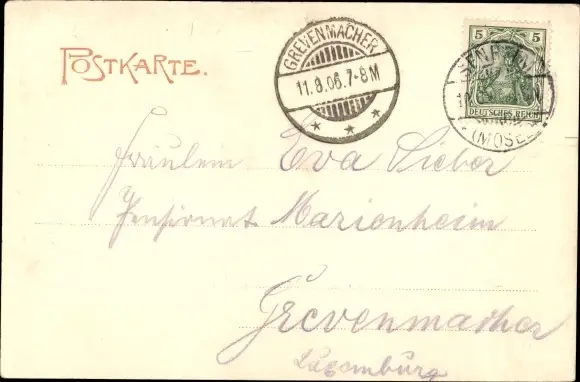 POSTKARTE.
GREVENMACHER
11.8.06.7-8M
5 5
DEUTSCHES REICH
(MOSEL)
Fräulein Eva Sieber
Pensionat Marienheim
Grevenmacher
Luxemburg